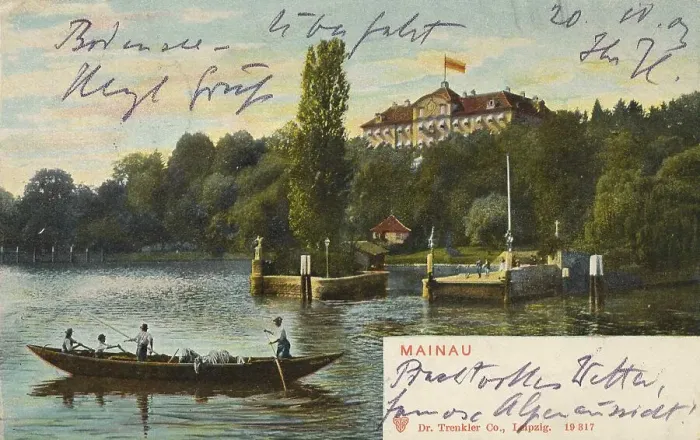 Bodensee- Überfahrt 20. IV. 09
Herzl. Gruß Ihr H.
MAINAU
Prachtvolles Wetter,
famose Alpenaussicht!
Dr. Trenkler Co., Leipzig. 19 317